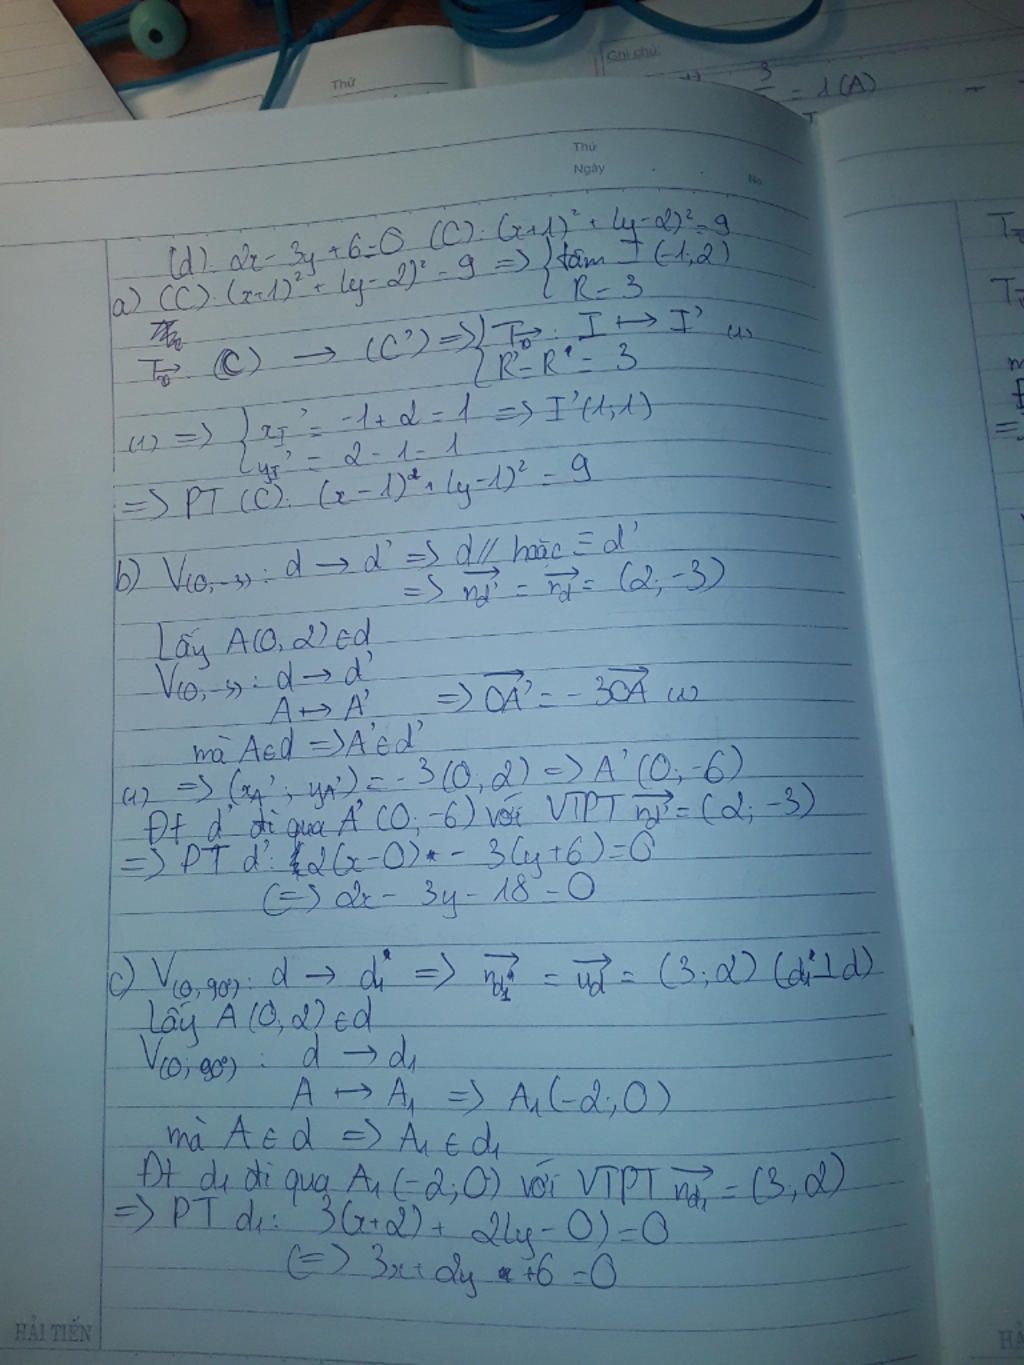 Thứ
Ghi chú:
3
= 1 (A)
Thứ
Ngày
No
(d): 2x - 3y + 6 = 0 (C): (x+1)² + (y-2)² = 9
a) (C): (x+1)² + (y-2)² = 9 => { tâm I (-1; 2)
R = 3
Tv⃗ (C) → (C') => { Tv⃗ : I ↦ I' (1)
R' = R = 3
(1) => { xI' = -1 + 2 = 1 => I'(1; 1)
yI' = 2 - 1 = 1
=> PT (C): (x-1)² + (y-1)² = 9
b) V(O, -3) : d → d' => d // hoặc ≡ d'
=> nd'⃗ = nd⃗ = (2; -3)
Lấy A(0, 2) ∈ d
V(O, -3) : d → d'
A ↦ A' => OA'⃗ = -3OA⃗ (1)
mà A ∈ d => A' ∈ d'
(1) => (xA' ; yA') = -3(0; 2) => A'(0; -6)
Đt d' đi qua A'(0; -6) với VTPT nd'⃗ = (2; -3)
=> PT d': 2(x-0) - 3(y+6) = 0
(=) 2x - 3y - 18 = 0
c) V(O, 90°) : d → d1 => nd1⃗ = ud⃗ = (3; 2) (d1 ⊥ d)
Lấy A(0, 2) ∈ d
V(O; 90°) : d → d1
A ↦ A1 => A1(-2; 0)
mà A ∈ d => A1 ∈ d1
Đt d1 đi qua A1(-2; 0) với VTPT nd1⃗ = (3; 2)
=> PT d1: 3(x+2) + 2(y-0) = 0
(=) 3x + 2y + 6 = 0
HẢI TIẾN